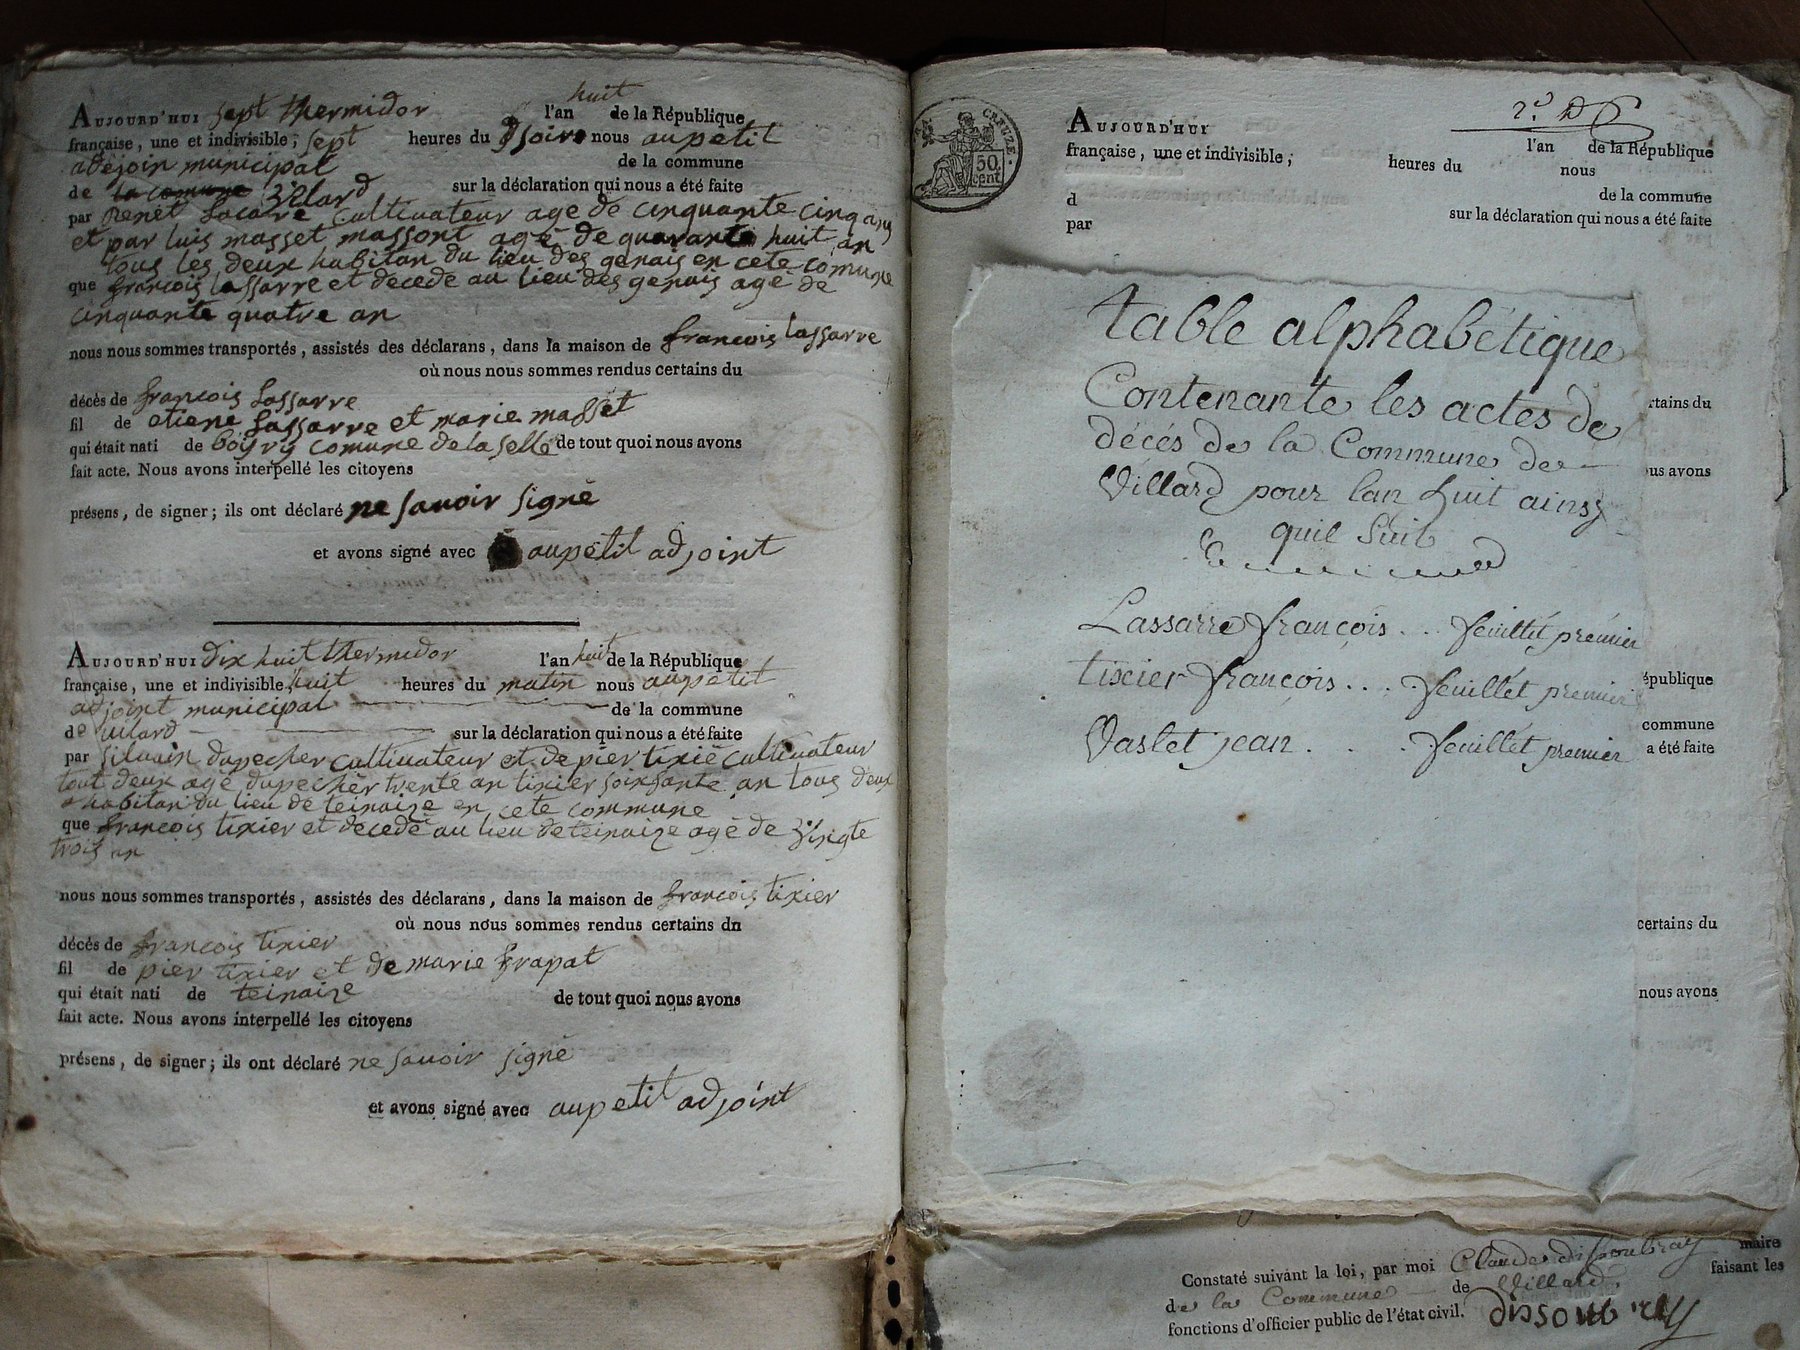 AUJOURD'HUI sept thermidor l'an huit de la République
française, une et indivisible; sept heures du soire nous aupetit
adejoin municipal de la commune
de la comune vilard sur la déclaration qui nous a été faite
par Renet Lacarre cultivateur age de cinquante cinq ans
et par luis masset massont agé de quarante huit an
tous les deux habitan du lieu des genais en cete comune
que françois Lassarre et decede au lieu des genais agé de
cinquante quatre an
nous nous sommes transportés, assistés des déclarans, dans la maison de françois lassarre
où nous nous sommes rendus certains du
décès de françois Lassarre
fil de etiene Lassarre et marie masset
qui était nati de comune de la selle de tout quoi nous avons
fait acte. Nous avons interpellé les citoyens
présens, de signer; ils ont déclaré ne savoir signé
et avons signé avec aupetit adjoint
AUJOURD'HUI dix huit thermidor l'an huit de la République
française, une et indivisible huit heures du matin nous aupetit
adjoint municipal de la commune
de vilard sur la déclaration qui nous a été faite
par silvain dupecher cultivateur et de pier tixié cultivateur
tout deux agé dupecher trente an tixier soixsante an tous deux
habitan du lieu de teinaize en cete commune
que françois tixier et decedé au lieu de teinaize agé de vingte
trois an
nous nous sommes transportés, assistés des déclarans, dans la maison de françois tixier
où nous nous sommes rendus certains dn
décès de françois tixier
fil de pier tixier et de marie frapat
qui était nati de teinaize de tout quoi nous avons
fait acte. Nous avons interpellé les citoyens
présens, de signer; ils ont déclaré ne savoir signé
et avons signé avec aupetit adjoint
LA CREUZE.
50
cent
AUJOURD'HUY l'an de la République
française, une et indivisible; heures du nous
d de la commune
par sur la déclaration qui nous a été faite
table alphabétique
Contenante les actes de
décés de la Commune de
Villard pour lan huit ainsy
quil suit
Lassarre françois . . . feuillét prémier
tixier françois . . . . feuillét premier
Vaslet jean . . . . feuillét premier
rtains du
us avons
épublique
commune
a été faite
certains du
nous avons
Constaté suivant la loi, par moi Claude dissoubray maire
de la Commune de Villard faisant les
fonctions d'officier public de l'état civil. dissoubray